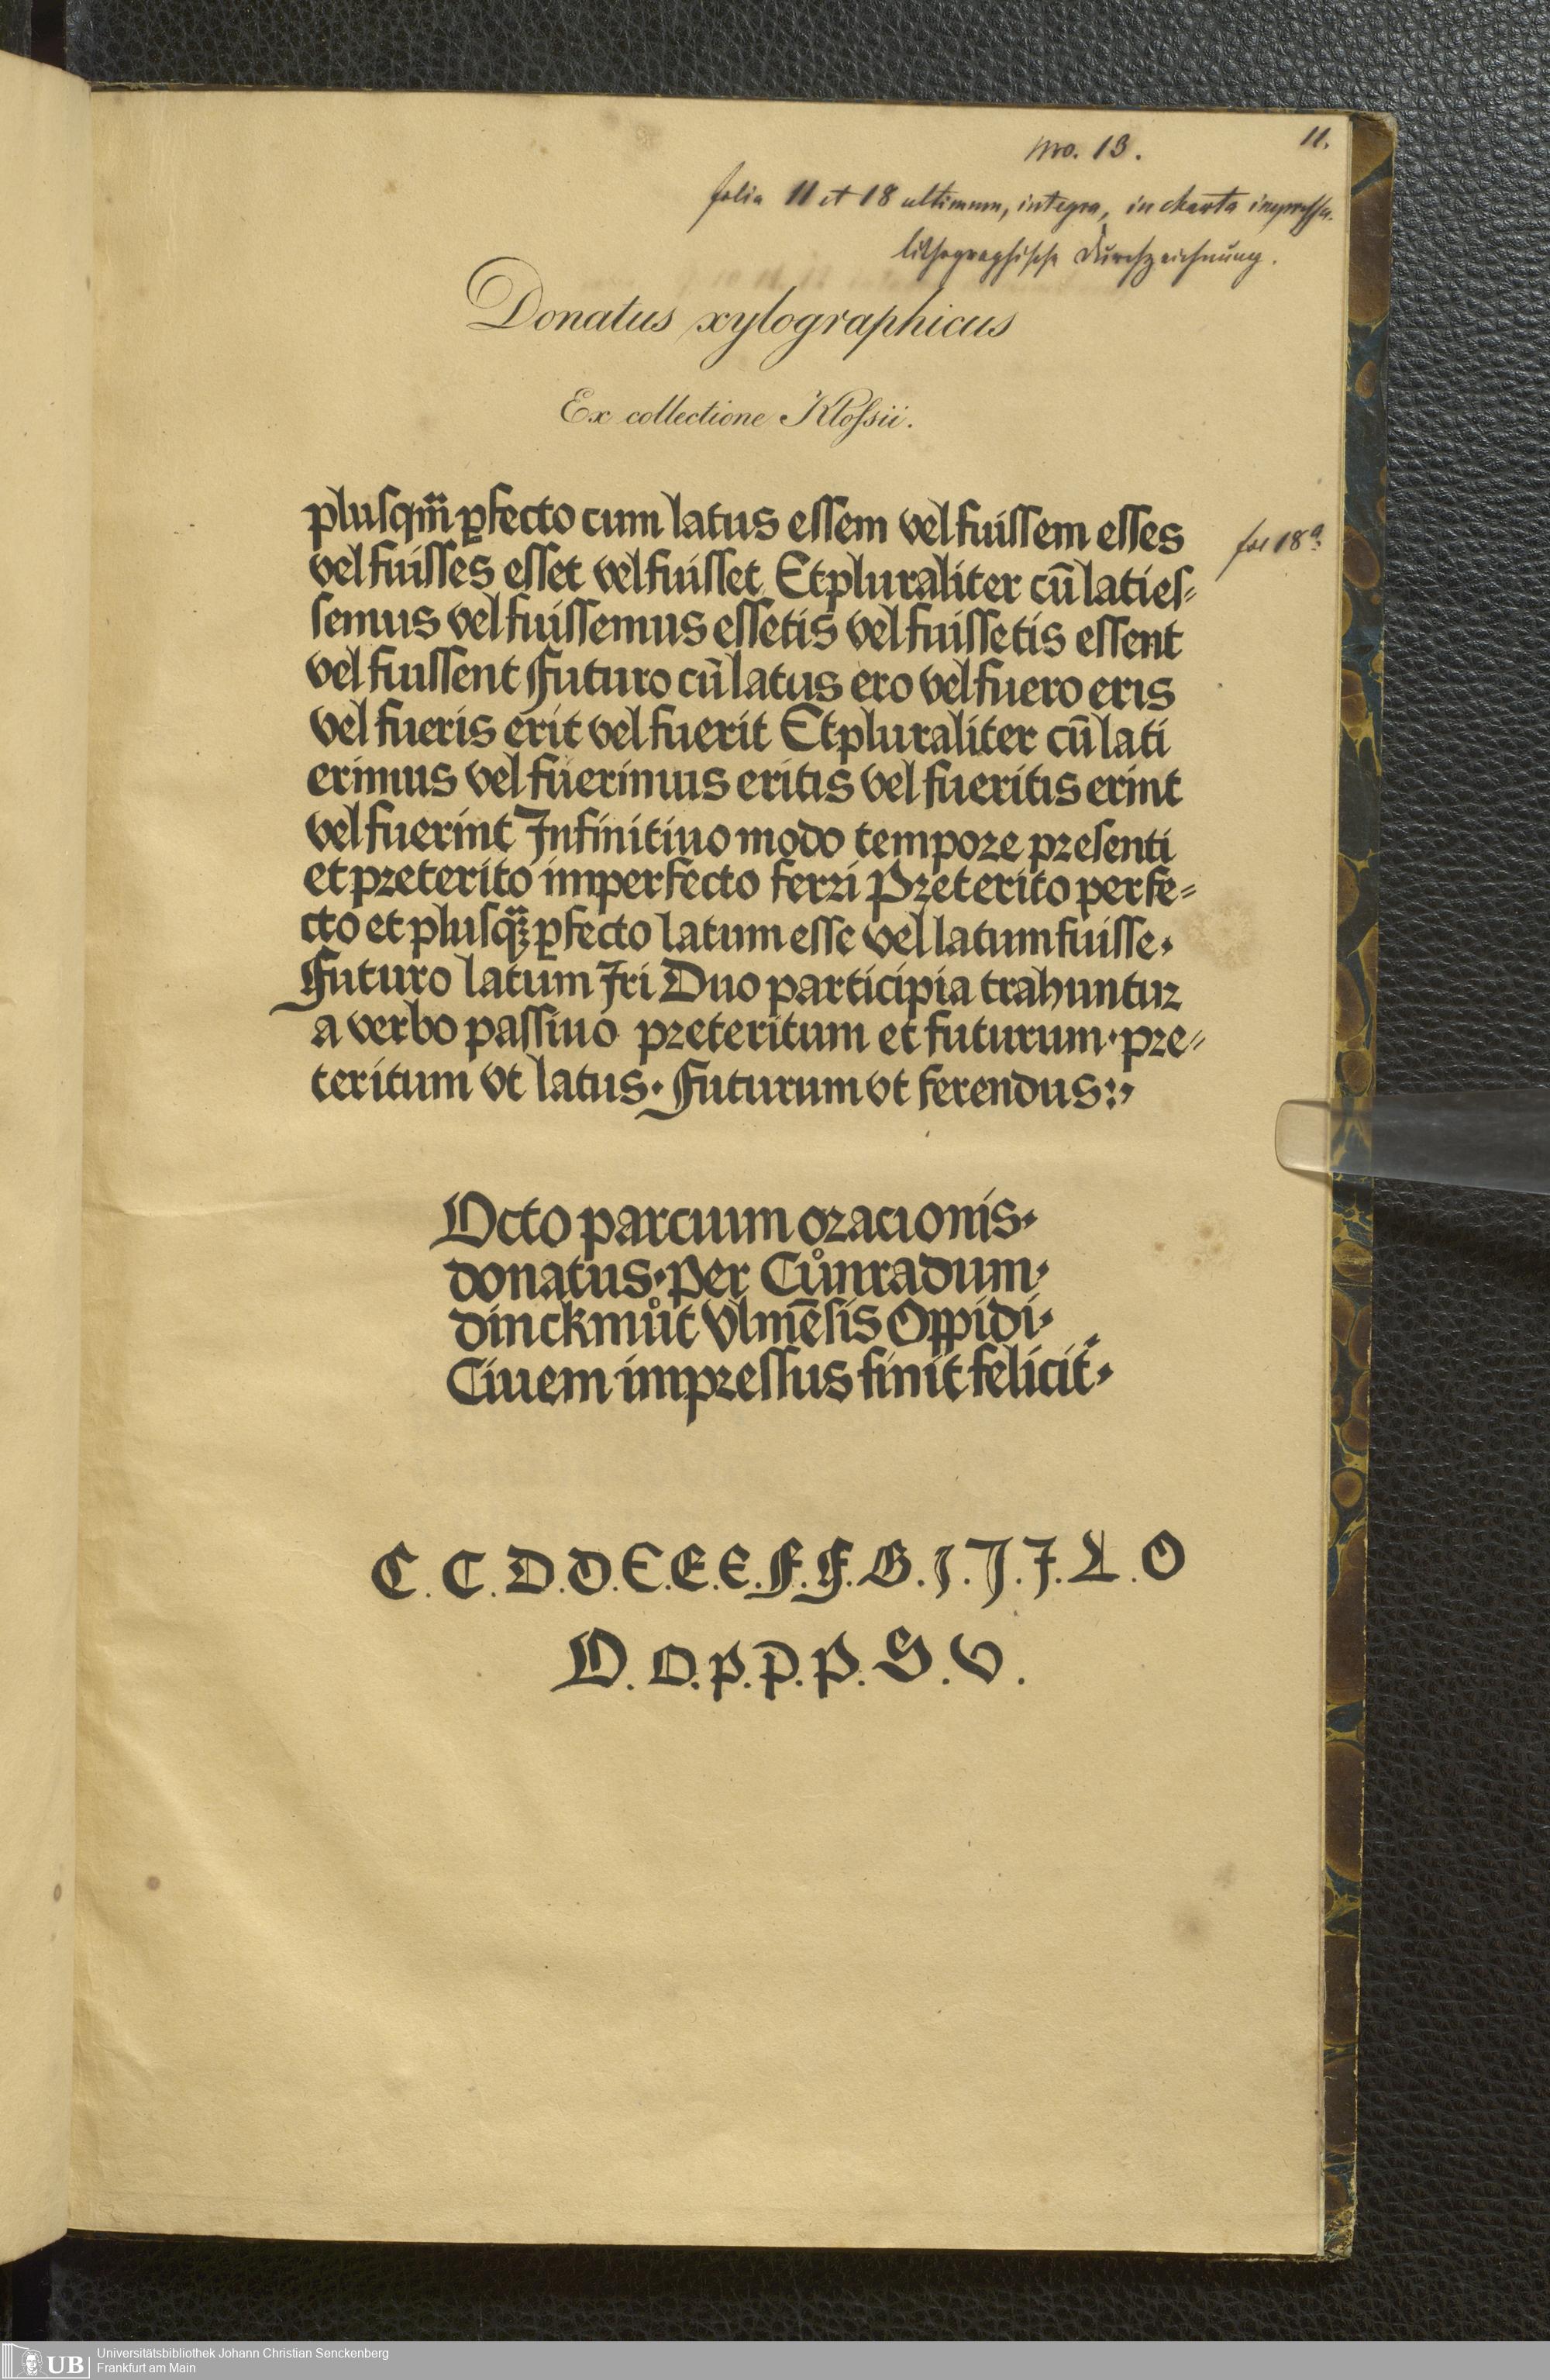 11.
No. 13.
folia 11 et 18 ultimum, integra, in charta impressa.
lithographische Durchzeichnung.
Donatus xylographicus
Ex collectione Kloſsii.
pluſqm̄ ꝑfecto cum latus eſſem vel fuiſſem eſſes
fol 18a.
vel fuiſſes eſſet vel fuiſſet Et pluraliter cū lati eſ⸗
ſemus vel fuiſſemus eſſetis vel fuiſſetis eſſent
vel fuiſſent Futuro cū latus ero vel fuero eris
vel fueris erit vel fuerit Et pluraliter cū lati
erimus vel fuerimus eritis vel fueritis erint
vel fuerint Infinitiuo modo tempoꝛe pꝛeſenti
et pꝛeterito imperfecto ferꝛi Pꝛeterito perfe⸗
cto et pluſqꝫ ꝑfecto latum eſſe vel latum fuiſſe·
Futuro latum Iri Duo participia trahuntuꝛ
a verbo paſſiuo pꝛeteritum et futurum· pꝛe⸗
teritum vt latus· Futurum vt ferendus:·
Octo parcium oꝛacionis·
donatus· Per Cůnradum·
dinckmůt Vlmēſis Oppidi·
Ciuem impꝛeſſus finit felicit̄·
C. C. D. D. E. E. E. F. F. G. I. I. I. L. O
O. O. P. P. P. S. V.
Universitätsbibliothek Johann Christian Senckenberg
Frankfurt am Main
UB